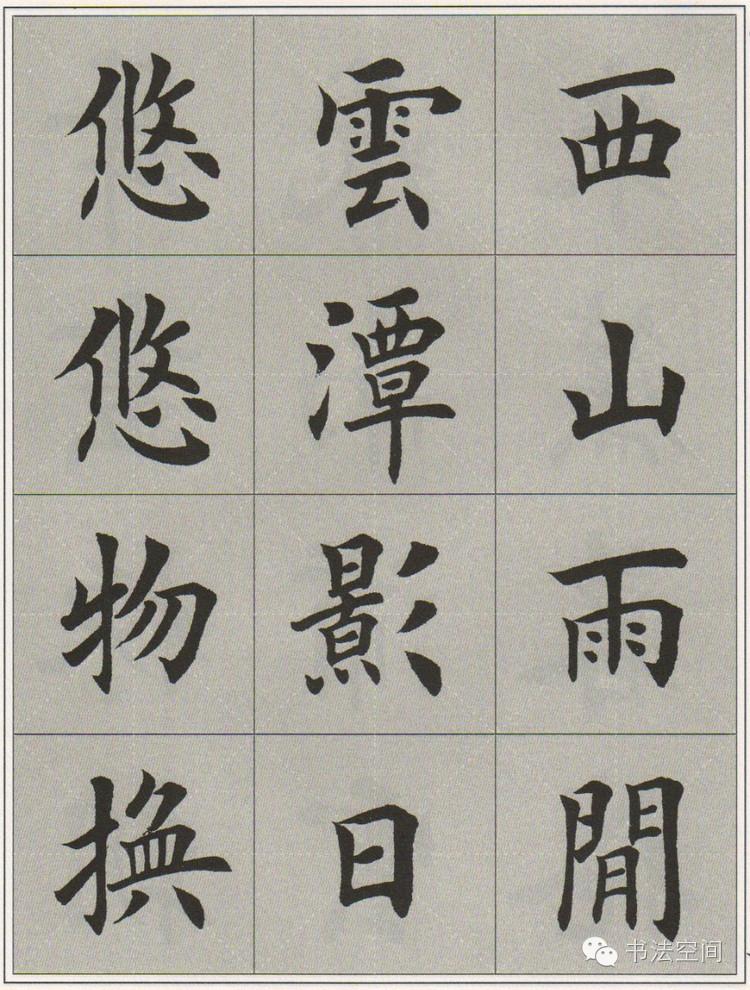 西山雨閒
雲潭影日
悠悠物換
书法空间